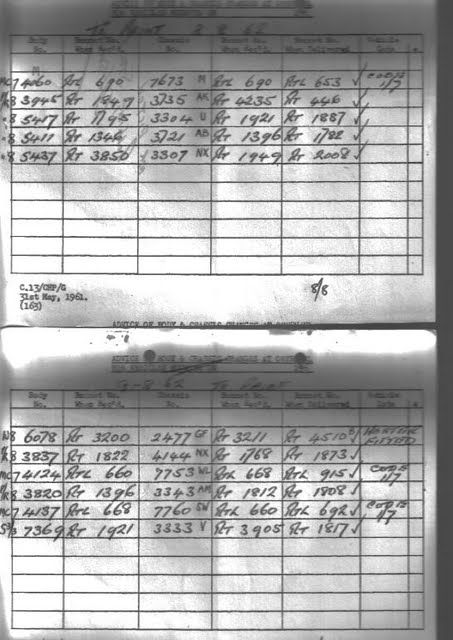 ADVICE OF BODY & CHASSIS CHANGES AT
TO PAINT 8 8 62
Body Bonnet No. Chassis Bonnet No. Bonnet No. Vehicle
No. When Rec'd. No. When Rec'd. When Delivered Code
MC7 4060 RTL 690 7673 M RTL 690 RTL 653 ✓ COD 12 1/7
R8 3945 RT 1847 3735 AK RT 4235 RT 446 ✓
"8 5417 RT 1795 3304 U RT 1921 RT 1887 ✓
"8 5411 RT 1346 3721 AB RT 1396 RT 1782 ✓
"8 5437 RT 3850 3307 NX RT 1949 RT 2008 ✓
C.13/CHP/G
31st May, 1961.
(163)
8/8
ADVICE OF BODY & CHASSIS CHANGES AT
ADVICE OF BODY & CHASSIS CHANGES AT
9-8 62 TO PAINT
Body Bonnet No. Chassis Bonnet No. Bonnet No. Vehicle
No. When Rec'd. No. When Rec'd. When Delivered Code
8 6078 RT 3200 2477 GF RT 3211 RT 4510 ✓ HEATERS FITTED
R8 3837 RT 1822 4144 NX RT 1768 RT 1873 ✓
MC7 4124 RTL 660 7753 WL RTL 668 RTL 915 ✓ 1/7
R8 3820 RT 1396 3343 AM RT 1812 RT 1808 ✓
MC7 4137 RTL 668 7760 SW RTL 660 RTL 692 ✓ COD 12 1/7
7369 RT 1921 3333 V RT 3905 RT 1817 ✓